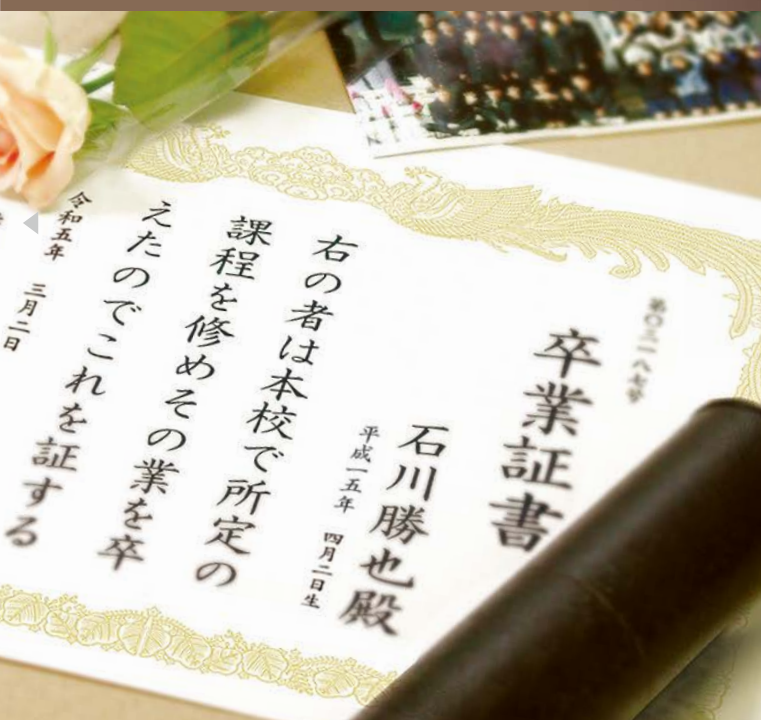 卒業証書
石川勝也殿
平成一五年　四月二日生
右の者は本校で所定の
課程を修めその業を卒
えたのでこれを証する
令和五年　三月二日